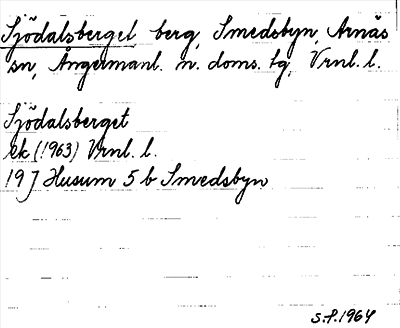 Sjödalsberget, berg, Smedsbyn, Arnäs
sn, Ångermanl. n. doms. tg, Vrnl. l.
Sjödalsberget
ek (1963) Vrnl. l.
19 J Husum 5 b Smedsbyn
s.f. 1964